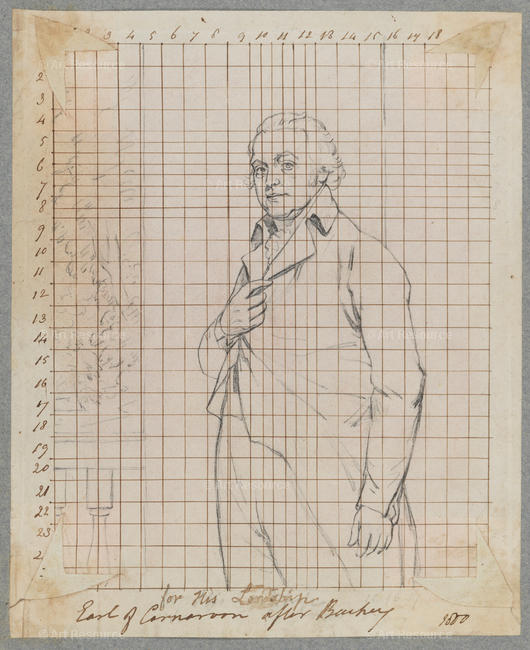 2 3 4 5 6 7 8 9 10 11 12 13 14 15 16 17 18
2
3
4
5
6
7
8
9
10
11
12
13
14
15
16
17
18
19
20
21
22
23
2
for His Lordship
Earl of Carnarvon after
© Art Resource